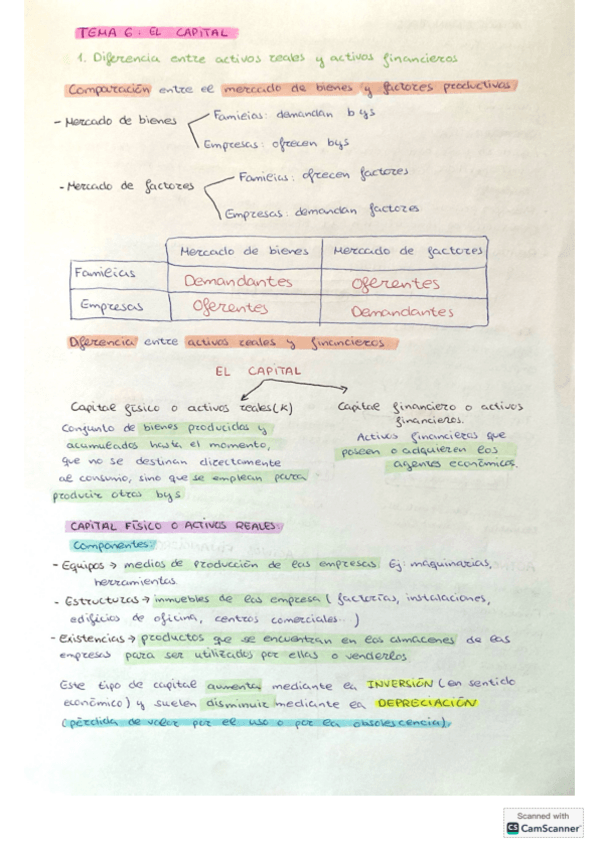 TEMA 6: EL CAPITAL
1. Diferencia entre activos reales y activos financieros
Comparación entre el mercado de bienes y factores productivos
- Mercado de bienes
Familias: demandan bys
Empresas: ofrecen bys
- Mercado de factores
Familias: ofrecen factores
Empresas: demandan factores
Mercado de bienes Mercado de factores
Familias Demandantes Oferentes
Empresas Oferentes Demandantes
Diferencia entre activos reales y financieros
EL CAPITAL
Capital físico o activos reales (K)
Conjunto de bienes producidos y
acumulados hasta el momento,
que no se destinan directamente
al consumo, sino que se emplean para
producir otros bys
Capital financiero o activos
financieros.
Activos financieros que
poseen o adquieren los
agentes económicos.
CAPITAL FÍSICO O ACTIVOS REALES:
Componentes:
- Equipos → medios de producción de las empresas. Ej: maquinarias,
herramientas.
- Estructuras → inmuebles de las empresa (factorías, instalaciones,
edificios de oficina, centros comerciales...)
- Existencias → productos que se encuentran en los almacenes de las
empresas para ser utilizados por ellas o venderlos.
Este tipo de capital aumenta mediante la INVERSIÓN (en sentido
económico) y suelen disminuir mediante la DEPRECIACIÓN
(pérdida de valor por el uso o por la obsolescencia).
Scanned with
CS CamScanner